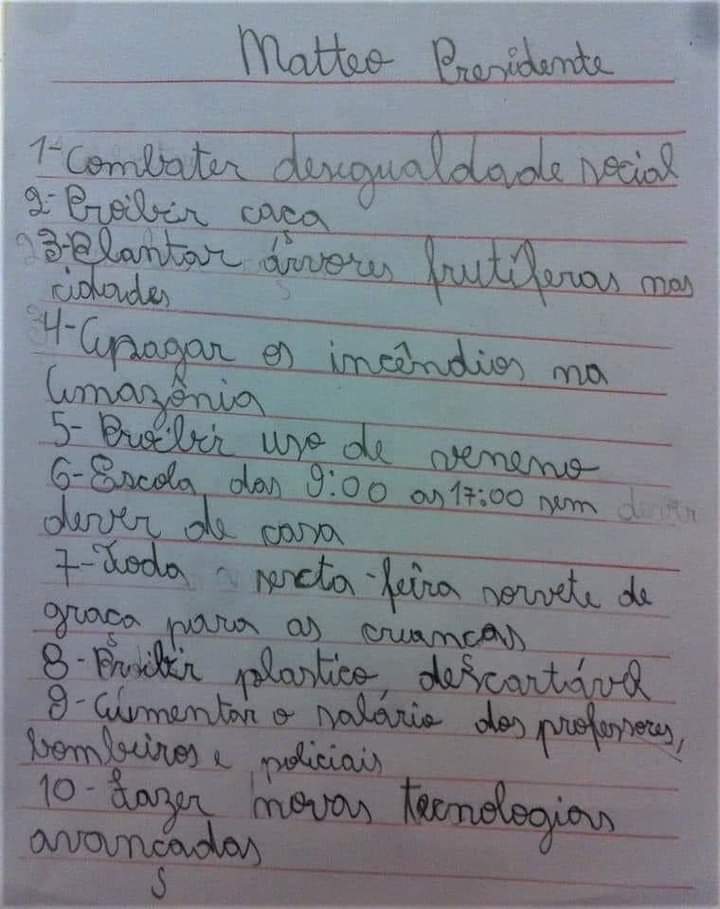 Matteo Presidente
1-Combater desigualdade social
2-Proibir caça
3-Plantar árvores frutíferas nas
cidades
4-Apagar os incêndios na
Amazônia
5-Proibir uso de veneno
6-Escola das 9:00 as 17:00 sem dever
dever de casa
7-Toda a sexta-feira sorvete de
graça para as crianças
8-Proibir plastico descartável
9-Aumentar o salário dos professores,
bombeiros e policiais
10-Fazer novas tecnologias
avançadas